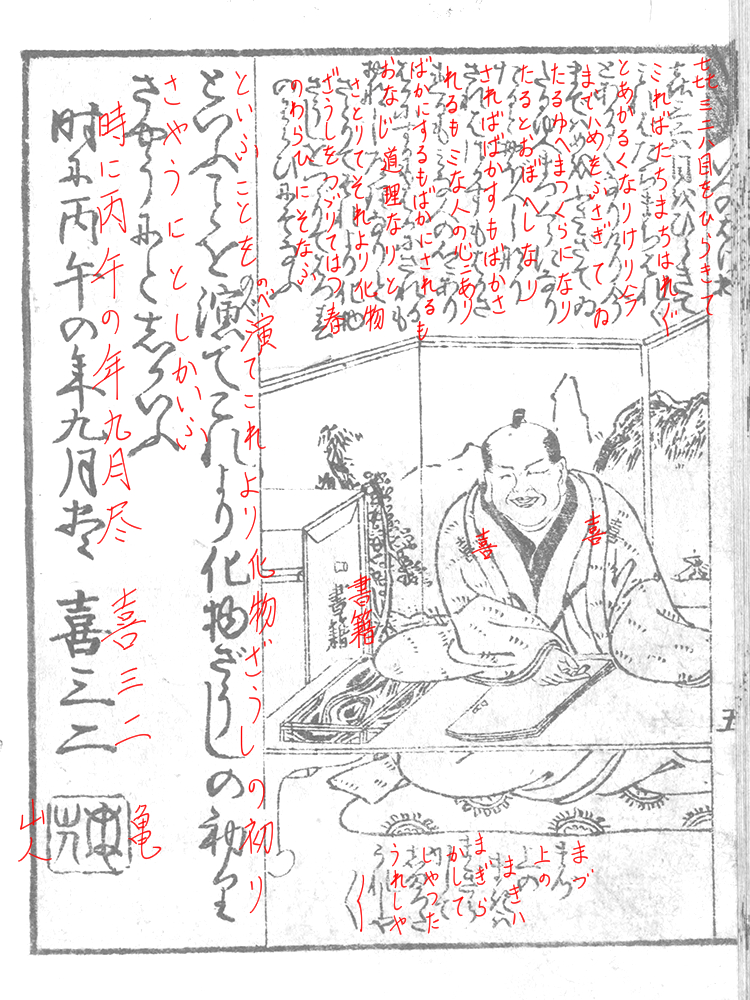 㐂三二ハ目をひらきて
ミればたちまちはれ〴〵
とあかるくなりけり今
までハめをふさぎてゐ
たるゆへまつくらになり
たるとおぼへしなり
さればばかすもばかさ
れるもミな人の心ニあり
ばかにするもばかにされるも
おなじ道理なりと
さとりてそれより化物
ざうしをつゞりてはつ春
のわらひにそなふ
喜
喜
書籍
まづ
上の
まきハ
まぎら
かして
じやつた
うれしや
〳〵
といふことを演てこれより化物ざうしの初り
のべ
さやうにとしかいふ
時に丙午の年九月尽 喜三二
亀
山人
五